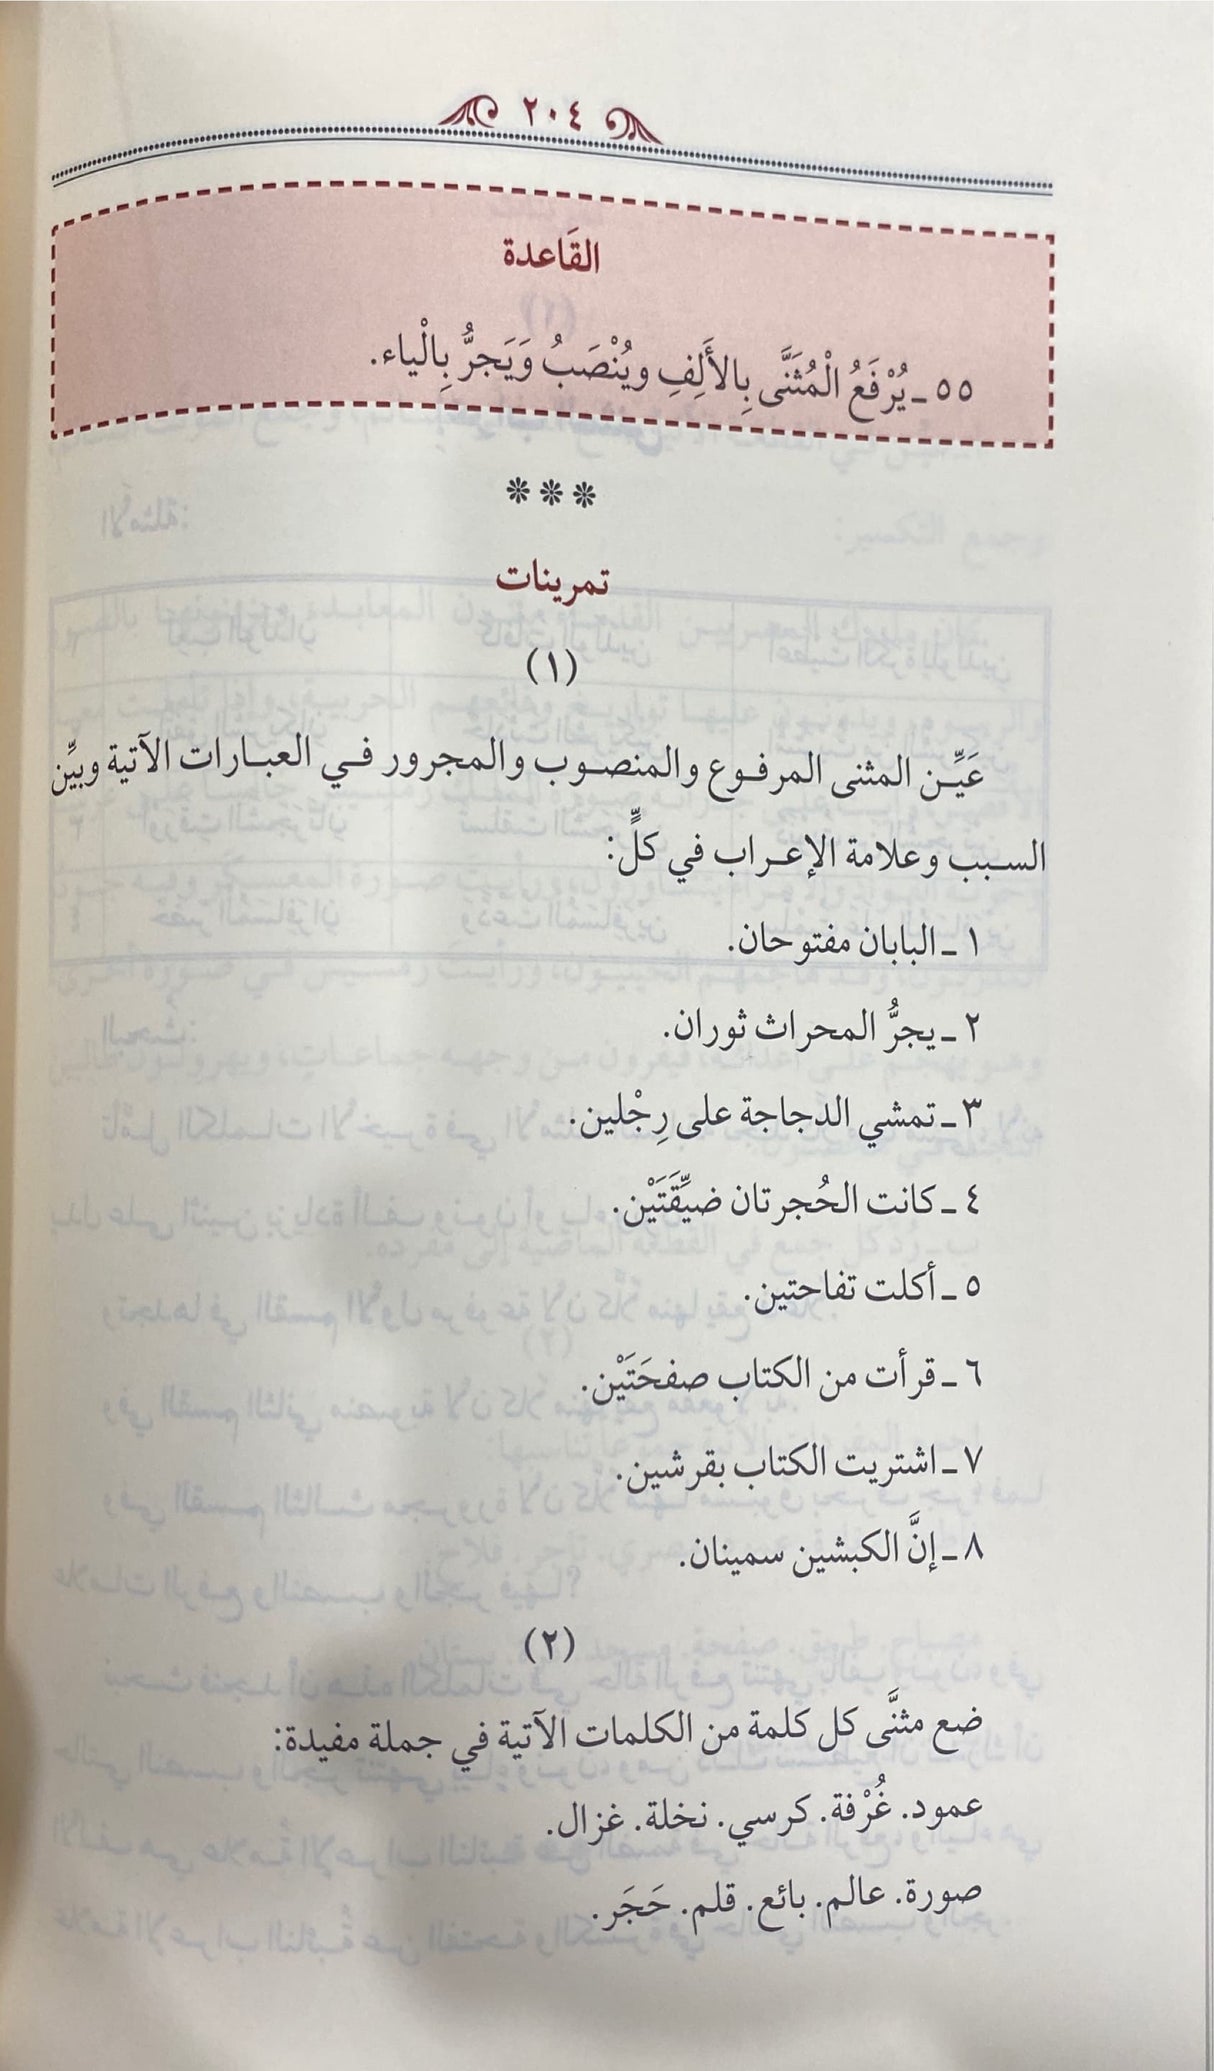 ٢٠٤
القَاعدة
٥٥ ـ يُرْفَعُ الْمُثَنَّى بِالأَلِفِ ويُنْصَبُ وَيَجرُّ بِالْياء.
***
تمرينات
(١)
عَيِّـن المثنى المرفـوع والمنصـوب والمجرور فـي العبـارات الآتية وبيِّن
السـبب وعلامة الإعـراب في كلٍّ:
١ ـ البابان مفتوحان.
٢ ـ يجرُّ المحراث ثوران.
٣ ـ تمشي الدجاجة على رِجْلين.
٤ ـ كانت الحُجرتان ضيِّقَتَيْن.
٥ ـ أكلت تفاحتين.
٦ ـ قرأت من الكتاب صفحَتَيْن.
٧ ـ اشتريت الكتاب بقرشين.
٨ ـ إنَّ الكبشين سمينان.
(٢)
ضع مثنَّى كل كلمة من الكلمات الآتية في جملة مفيدة:
عمود. غُرْفة. كرسي. نخلة. غزال.
صورة. عالم. بائع. قلم. حَجَر.